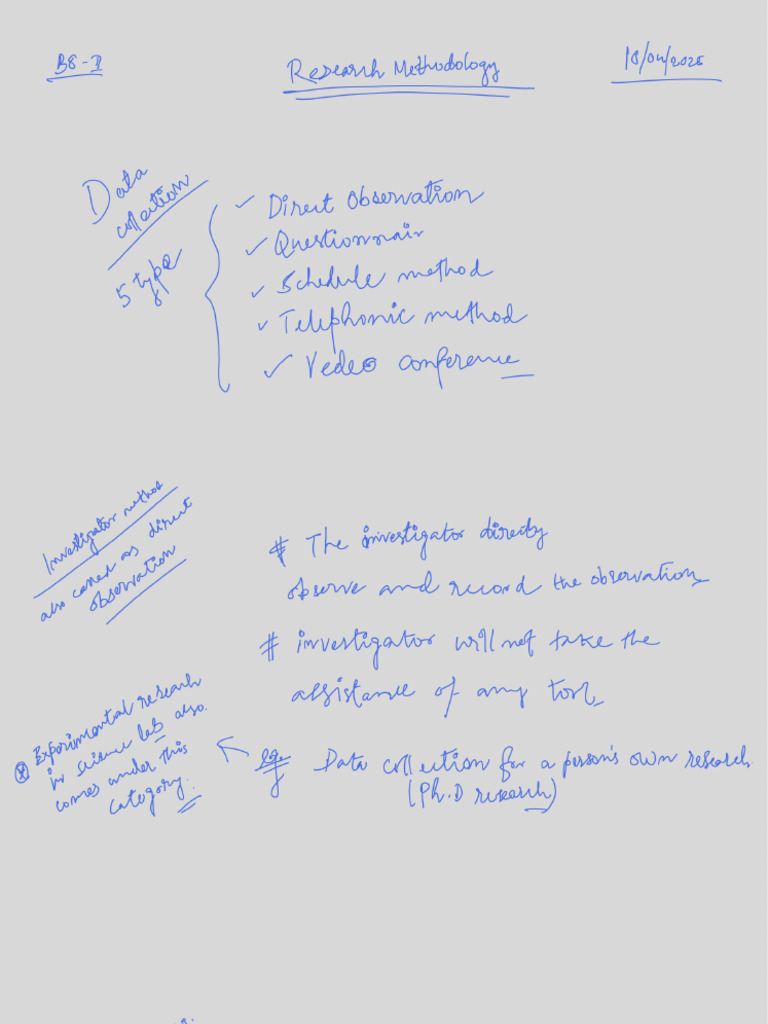 B8-I
Research Methodology
18/04/2025
Data
collection
5 type
Direct Observation
Questionnair
Schedule method
Telephonic method
Vedeo conference
Investigator method
also called as direct
observation
# The investigator directly
observe and record the observation
# investigator will not take the
assistance of any tool
eg. Data collection for a person's own research
(Ph.D research)
Experimental research
in science lab also
comes under this
category.